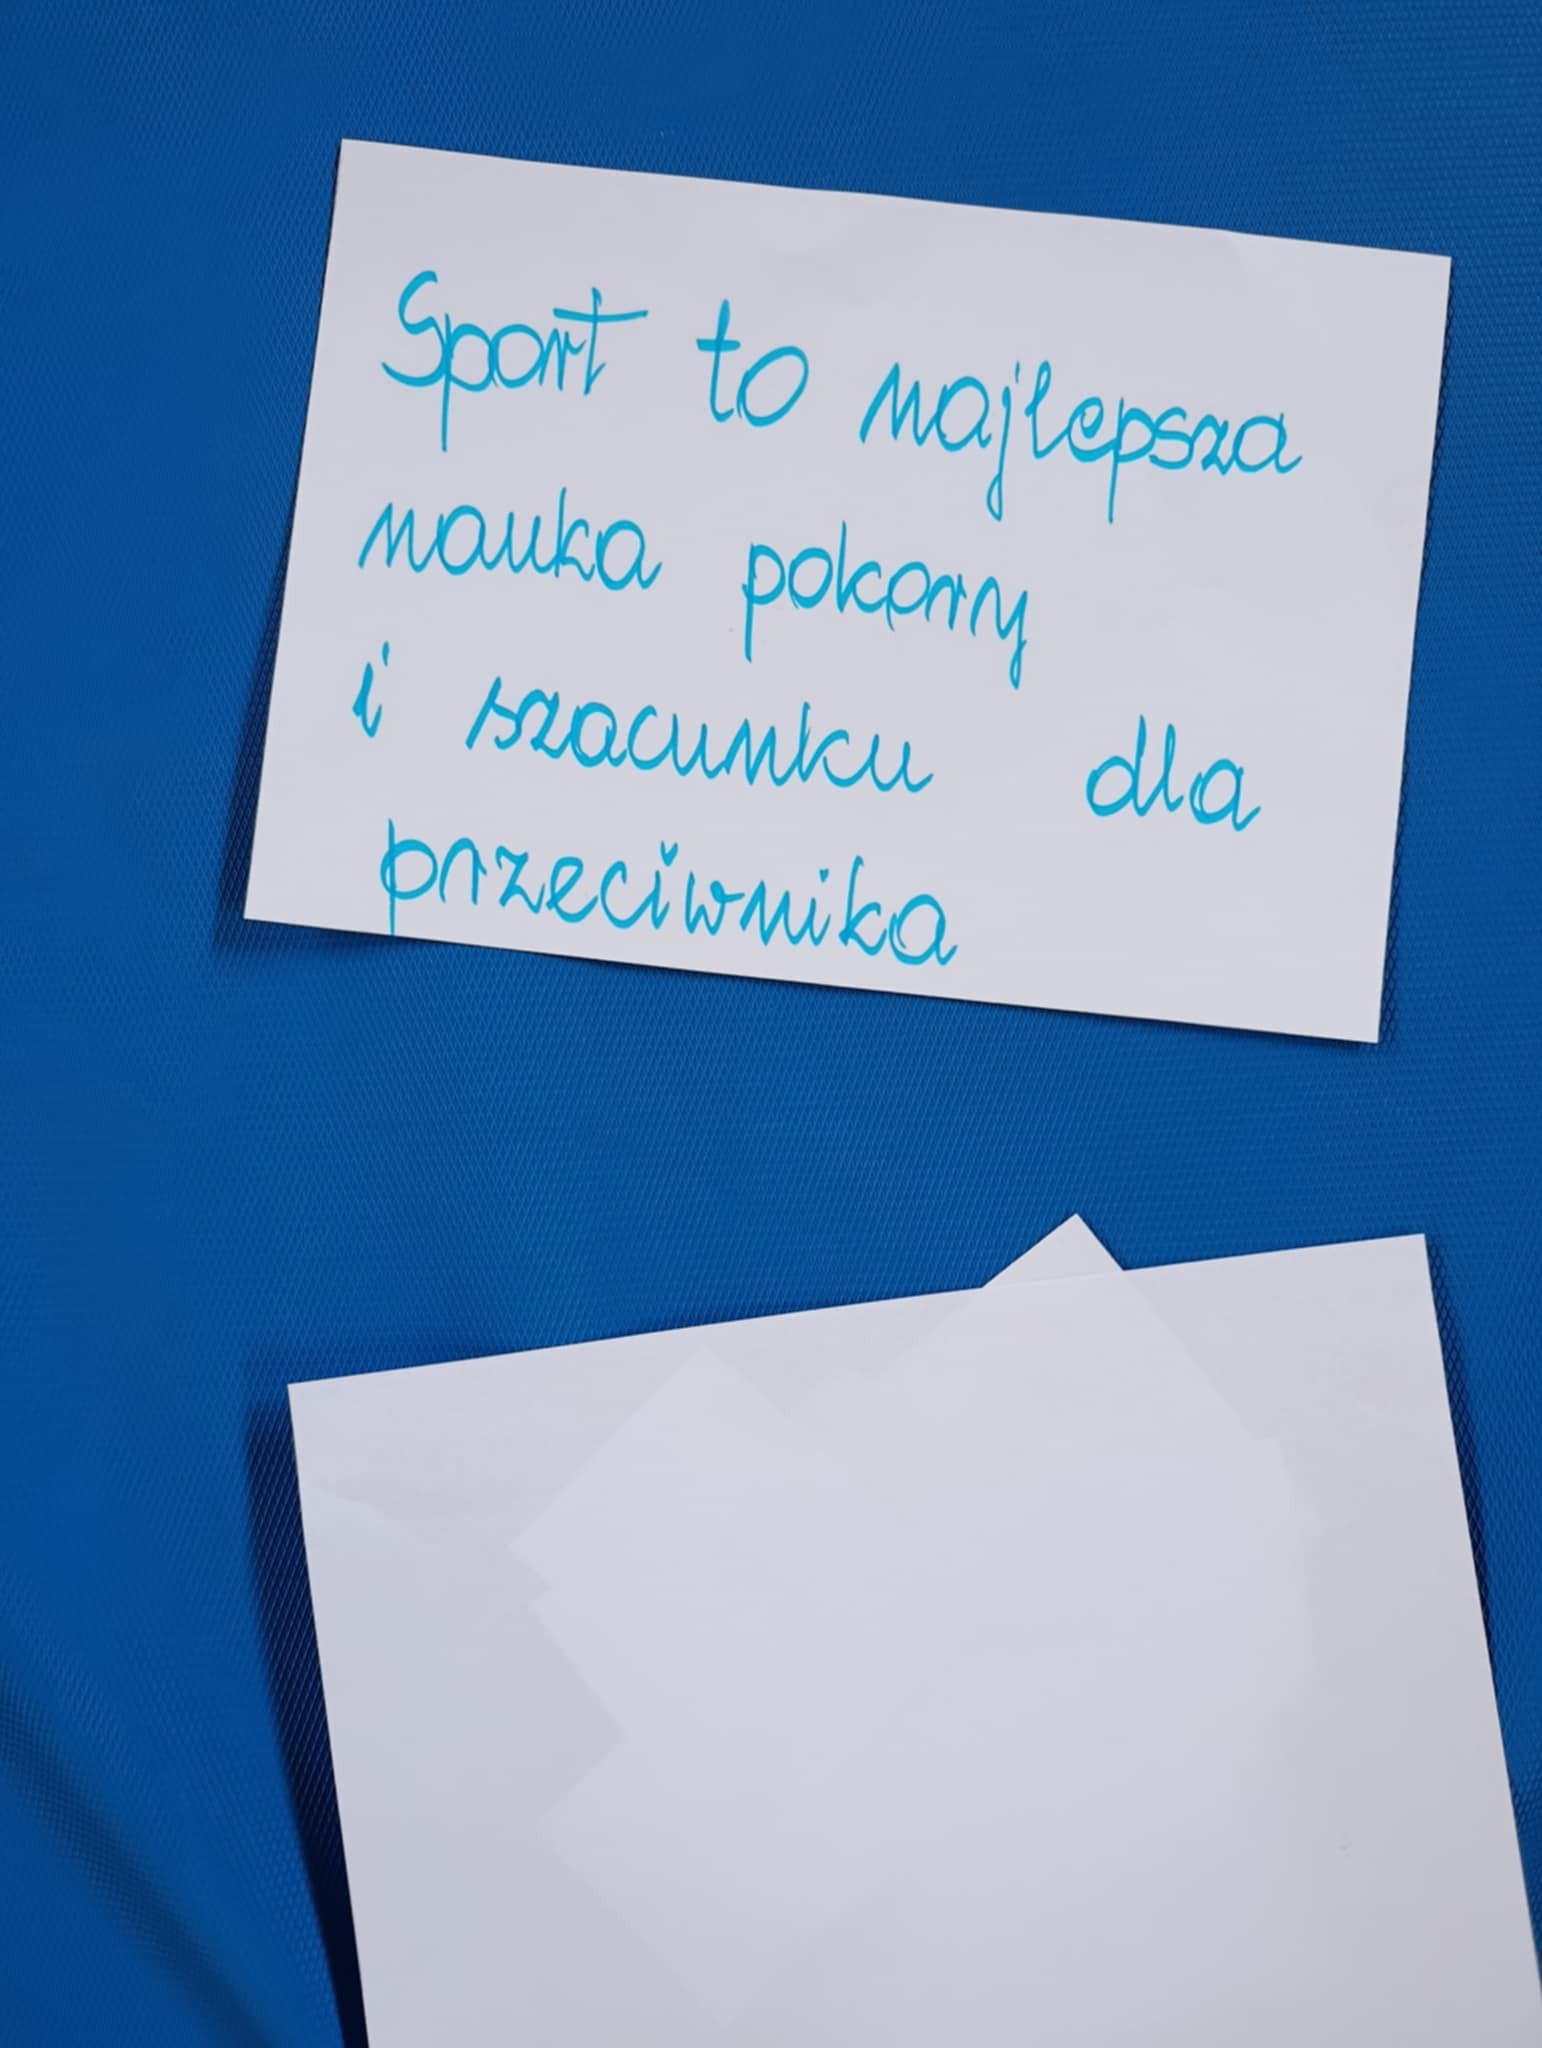 Sport to najlepsza
nauka pokory
i szacunku dla
przeciwnika